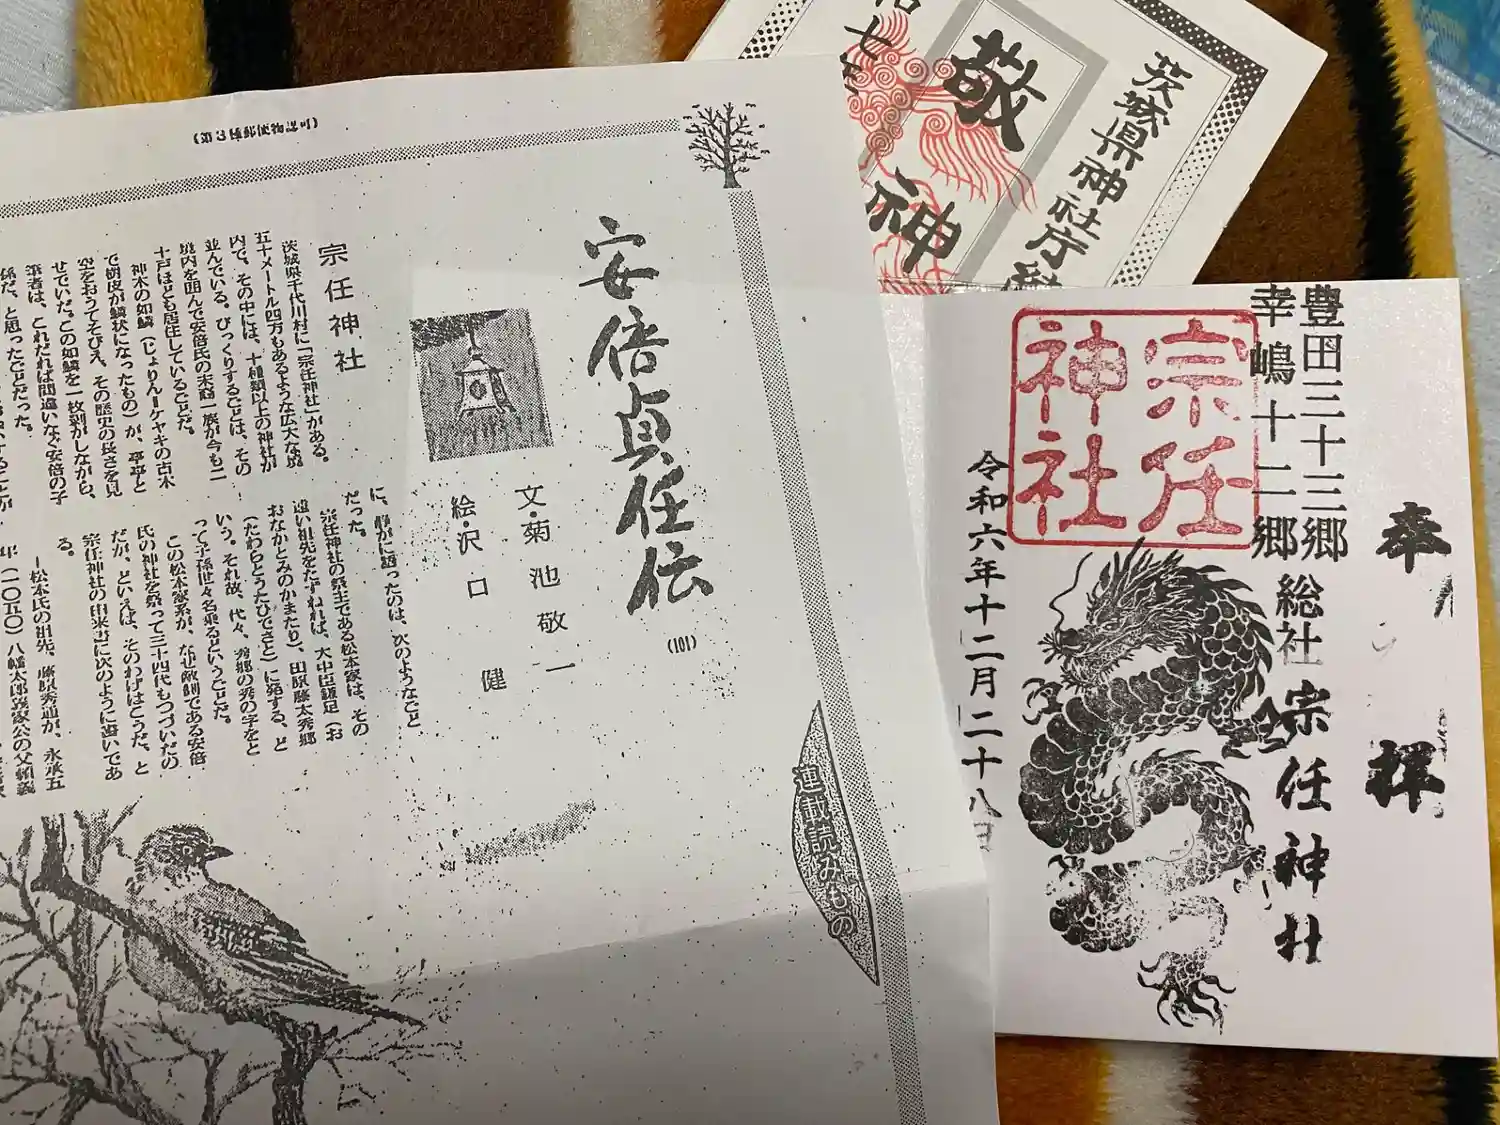 (第3種郵便物認可)
安倍貞任伝
(101)
文・菊池敬一
絵・沢口健
連載読みもの
宗任神社
茨城県千代川村に「宗任神社」がある。
五十メートル四方もあるような広大な境
内で、その中には、十種類以上の神社が
並んでいる。びっくりすることは、その
境内を囲んで安倍氏の末裔一族が今も二
十戸ほども居住していることだ。
神木の如鱗(じょりん=ケヤキの古木
で樹皮が鱗状になったもの)が、亭亭と
空をおうてそびえ、その歴史の長さを見
せていた。この如鱗を一枚剥がしながら、
筆者は、これだれば間違いなく安倍の子
孫だ、と思ったことだった。
に、静かに語ったのは、次のようなこと
だった。
宗任神社の祭主である松本家は、その
遠い祖先をたずねれば、大中臣鎌足(お
おなかとみのかまたり)、田原藤太秀郷
(たわらとうたひでさと)に発する、と
いう。それ故、代々、秀郷の秀の字をと
って子孫世々名乗るということだ。
この松本家系が、なぜ敵側である安倍
氏の神社を祭って三十四代もつづいたの
だが、といえば、そのわけはこうだ、と
宗任神社の由来書に次のように書いてあ
る。
―松本氏の祖先、藤原秀通が、永承五
年(一〇五〇)八幡太郎義家公の父頼義
茨城県神社庁
敬神
七年
奉拝
豊田三十三郷
幸嶋十二郷
総社 宗任神社
宗任神社
令和六年十二月二十八日